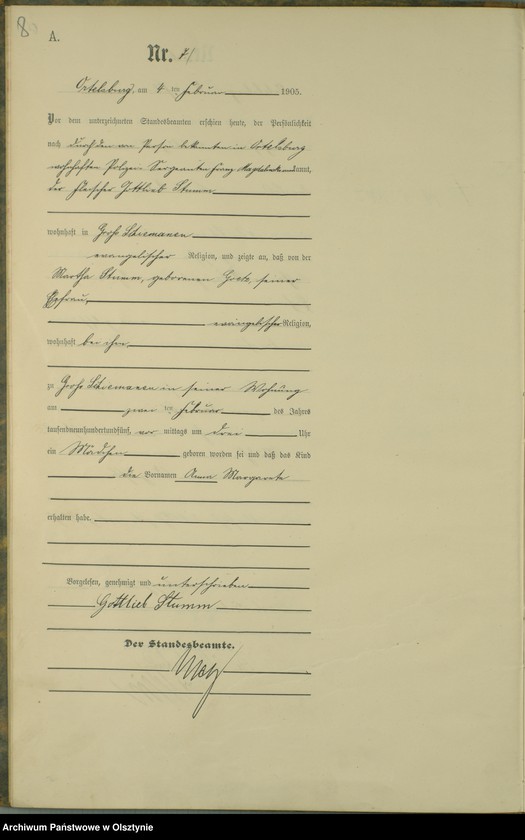 8
A.
Nr. 71
Ortelsburg, am 4 ten Februar 1905.
Vor dem unterzeichneten Standesbeamten erschien heute, der Persönlichkeit
nach durch den von Person bekannten in Ortelsburg
wohnhaften Polizei Sergeanten Franz kannt,
der Fleischer Gottlieb Stumm
wohnhaft in Groß Schiemanen
evangelischer Religion, und zeigte an, daß von der
Martha Stumm, geborenen seiner
Ehefrau,
evangelischer Religion,
wohnhaft bei ihm,
zu Groß Schiemanen in seiner Wohnung
am zwei ten Februar des Jahres
tausendneunhundertundfünf, vor mittags um drei Uhr
ein Mädchen geboren worden sei und daß das Kind
die Vornamen Anna Margarete
erhalten habe.
Vorgelesen, genehmigt und unterschrieben
Gottlieb Stumm
Der Standesbeamte.
Archiwum Państwowe w Olsztynie